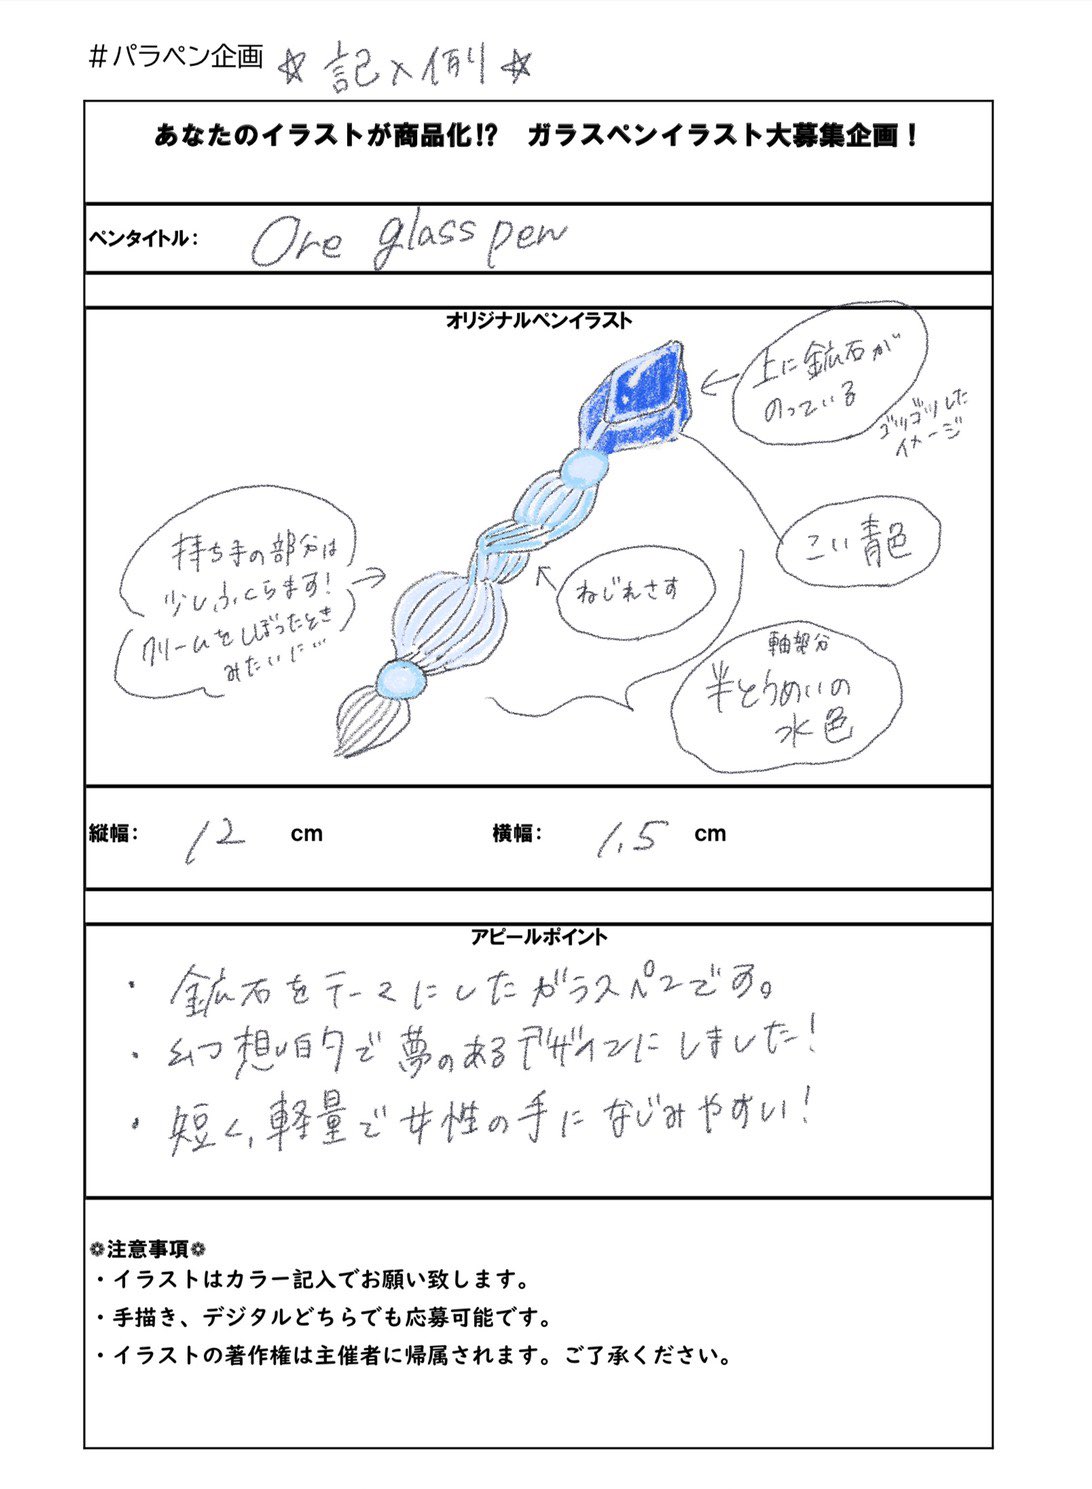 #パラペン企画 ☆記入例☆
あなたのイラストが商品化!? ガラスペンイラスト大募集企画！
ペンタイトル： Ore glass pen
オリジナルペンイラスト
上に鉱石が
のっている
ゴツゴツした
イメージ
こい青色
持ち手の部分は
少しふくらます！
クリームをしぼったとき
みたいに…
ねじれさす
軸部分
半とうめいの
水色
縦幅： 12 cm 横幅： 1.5 cm
アピールポイント
・鉱石をテーマにしたガラスペンです。
・幻想的で夢のあるデザインにしました！
・短く、軽量で女性の手になじみやすい！
❁注意事項❁
・イラストはカラー記入でお願い致します。
・手描き、デジタルどちらでも応募可能です。
・イラストの著作権は主催者に帰属されます。ご了承ください。